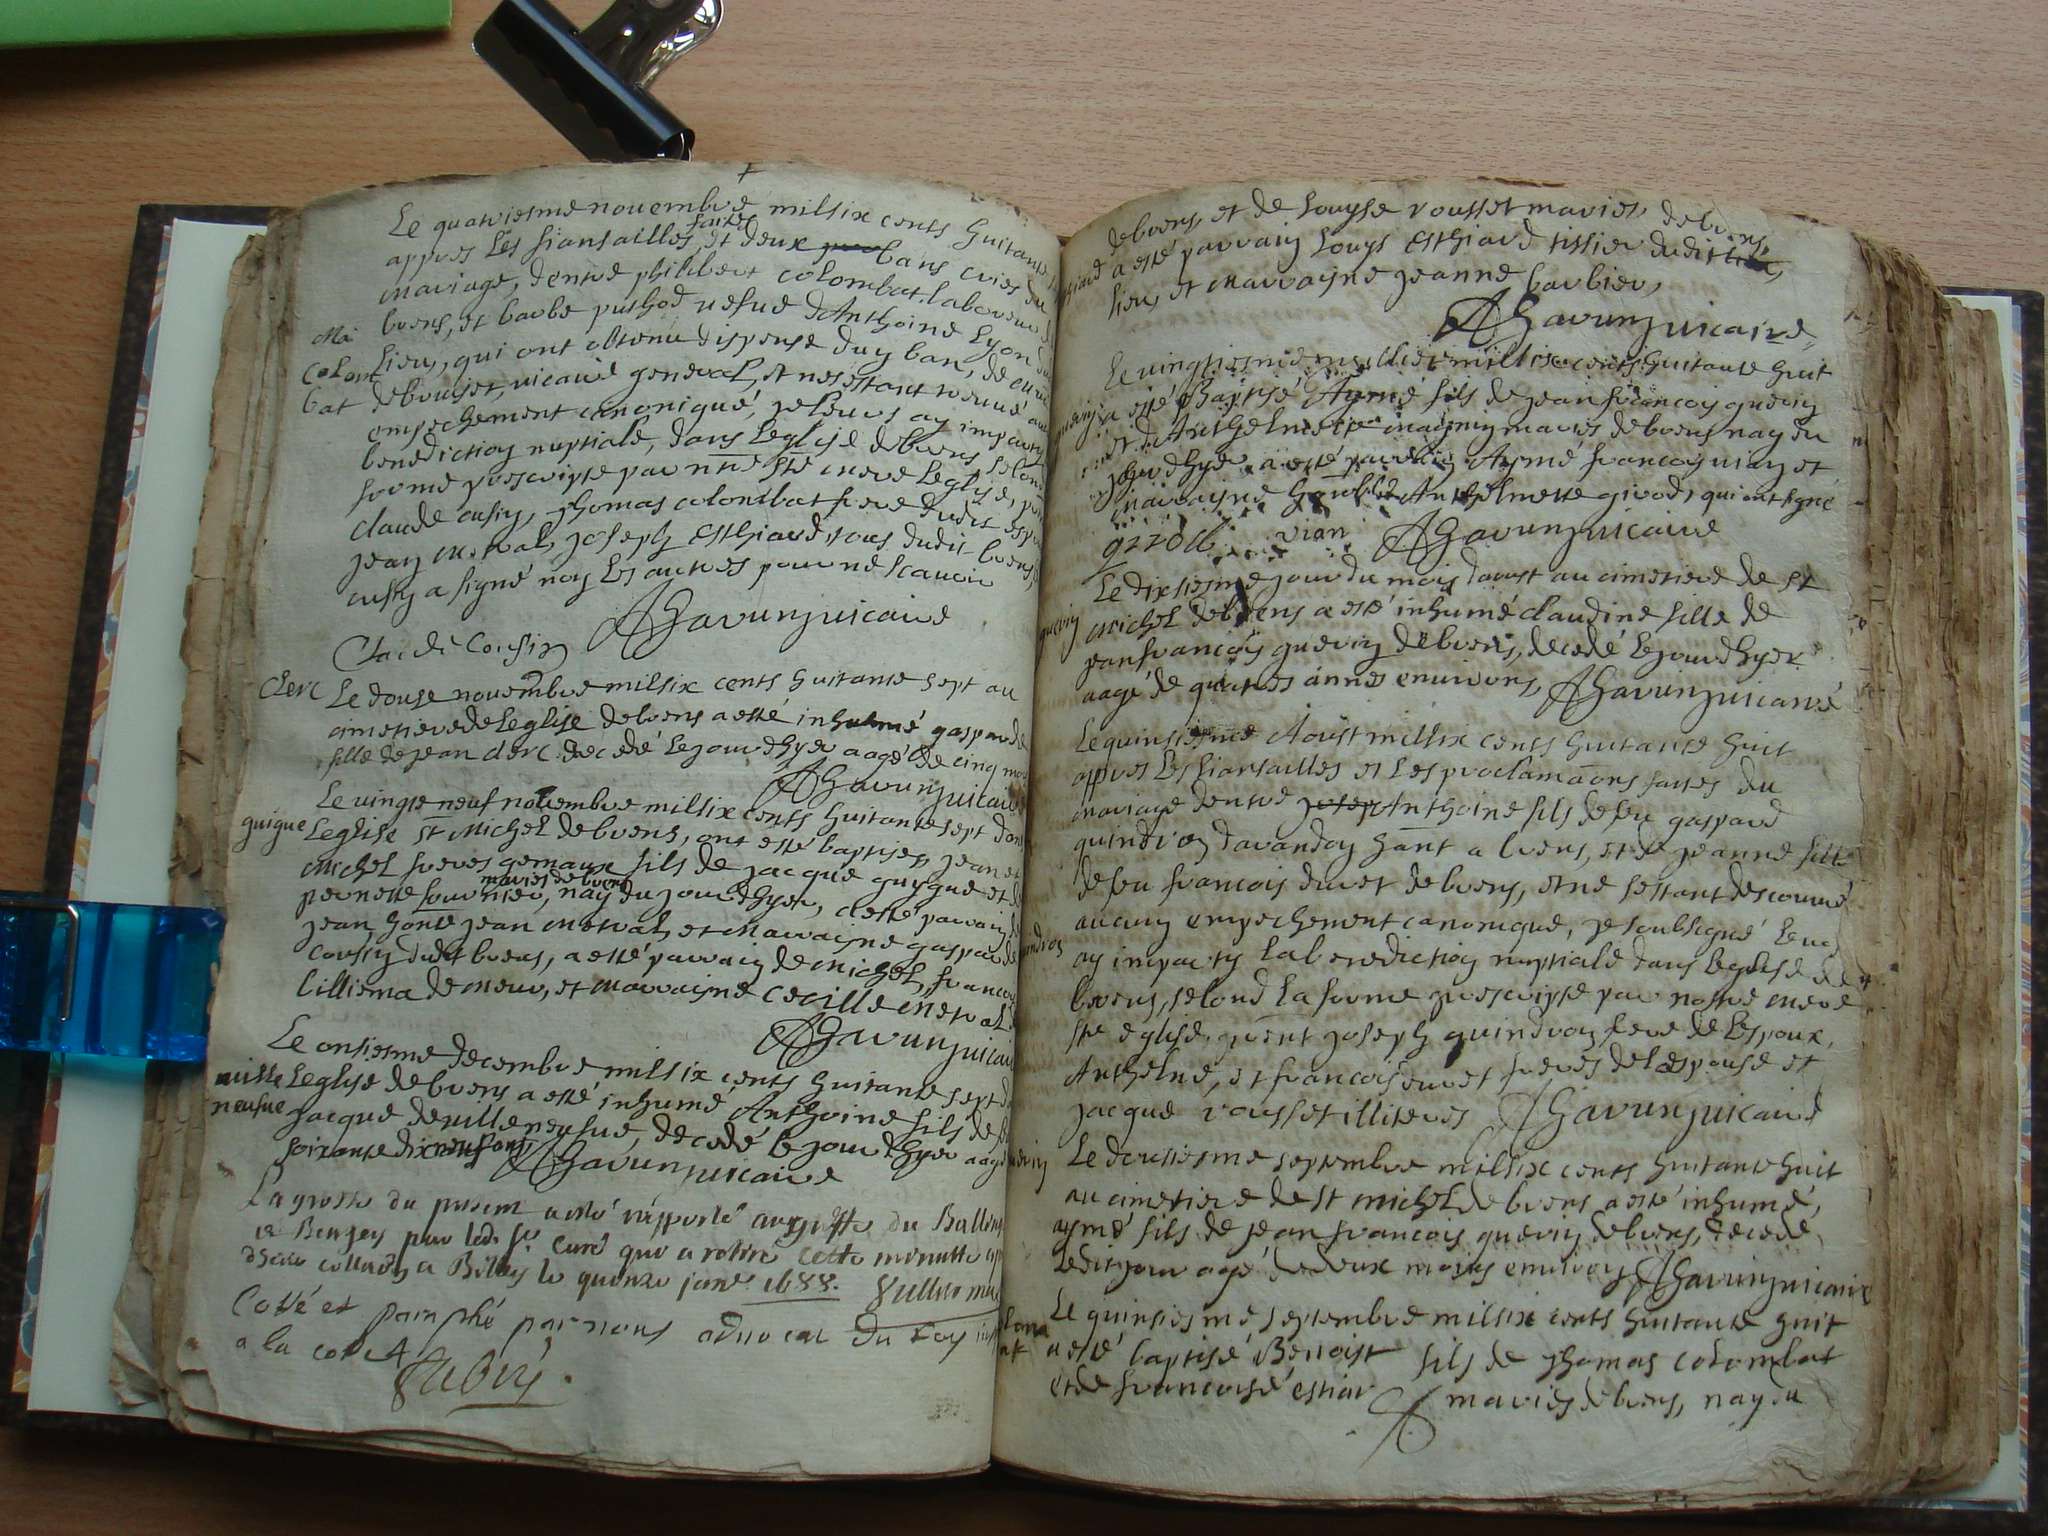 Le quatriesme novembre mil six cents huitante
appres les fiansailles faites, et deux bans cries du
mariage, dentre philibert colombat laboreur
brens, et barbe puthod vefue dAnthoine Lyon
Ma
colom
bat
lieu, qui ont obtenu dispense duy ban, de
debourset, vicaire general, et nes estant treuvé
empechement canonique, je leurs ay imparty
benediction nuptiale, dans leglise debrens selond
forme prescripte par nre ste mere leglise,
claude cusin, thomas colombat frere dudit
jean metral, joseph Esthiard, tous dudit brens,
cusin a signé noy les autres pour ne scavoir
AGavuny vicaire
Claude Cousin
clerc
Le douse novembre mil six cents huitante sept au
cimetiere de leglise debrens a esté inhumé gasparde
fille de jean clerc decedé le jour dhyer aagé de cinq
AGavuny vicaire
guigue
Le vingte neuf novembre mil six cents huitante sept dans
leglise st Michel debrens, ont esté baptises, jean et
michel freres gemaux fils de jacque guygue et de
pernette fournier, maries de brens nay du jour dhyer, a esté parrain de
jean honte jean metral, et marrayne gasparde
cousin dudit brens, a esté parrain de michel, francois
lilliema de meur, et marrayne cecille metral
AGavuny vicaire
ville
neufue
Le onsiesme decembre mil six cents huitante sept
leglise debrens a esté inhumé Anthoine fils de
jacque deville neufue, decedé le jour dhyer aagé
soixante dix neuf ans AGavuny vicaire
La grosse du present a esté rapporté au greffe du Balliage
de Bugey par led. sr. curé qui a retiré cette minutte
a Belley le quinze janr. 1688.
Cotté et paraphé par nous advocat du Roy
a la cotte A
debrens, et de louyse rousset maries, debrens,
a esté parrain louys Esthiard tissier dudit
lieu, et marrayne jeanne barbier,
AGavuny vicaire
Le vingtiesme juillet mil six cents huitante huit
guerin
a esté Baptisé Aymé fils de jean francois guerin
et dAnthelmette magnin maries debrens nay du
jour dhyer a esté parrain Aymé francois vian et
marrayne Anthelmette girod, qui ont signé
girod vian AGavuny vicaire
Le dixsiesme jour du mois daoust au cimetiere de st
guerin
michel debrens a esté inhumé claudine fille de
jean francois guerin debrens, decedé le jour dhyer
aagé de quatres annes environs, AGavuny vicaire
Le quinsiesme Aoust mil six cents huitante huit
appres les fiansailles et les proclamaons faites du
mariage dentre Anthoine fils de feu gaspard
quindroy davandoy hant a brens, et de jeanne fille
de feu francois duret de brens, et ne sestant descouvré
aucuny empechement canonique, je soubsigné
ay imparty la benediction nuptiale dans leglise de
brens, selond la forme prescripte par nostre mere
ste eglise, joseph quindroy frere de lespoux,
Anthelme, et francois duret freres de lespouse et
jacque rousset illiteres AGavuny vicaire
guerin
Le dousiesme septembre mil six cents huitante huit
au cimetiere de st michel de brens a esté inhumé,
aymé fils de jean francois guerin debrens, decedé
ledit jour agé de deux moys environ AGavuny vicaire
colom
bat
Le quinsiesme septembre mil six cents huitante huit
a esté baptisé Benoist fils de thomas colombat
et de francoise estiar maries de brens, nay du